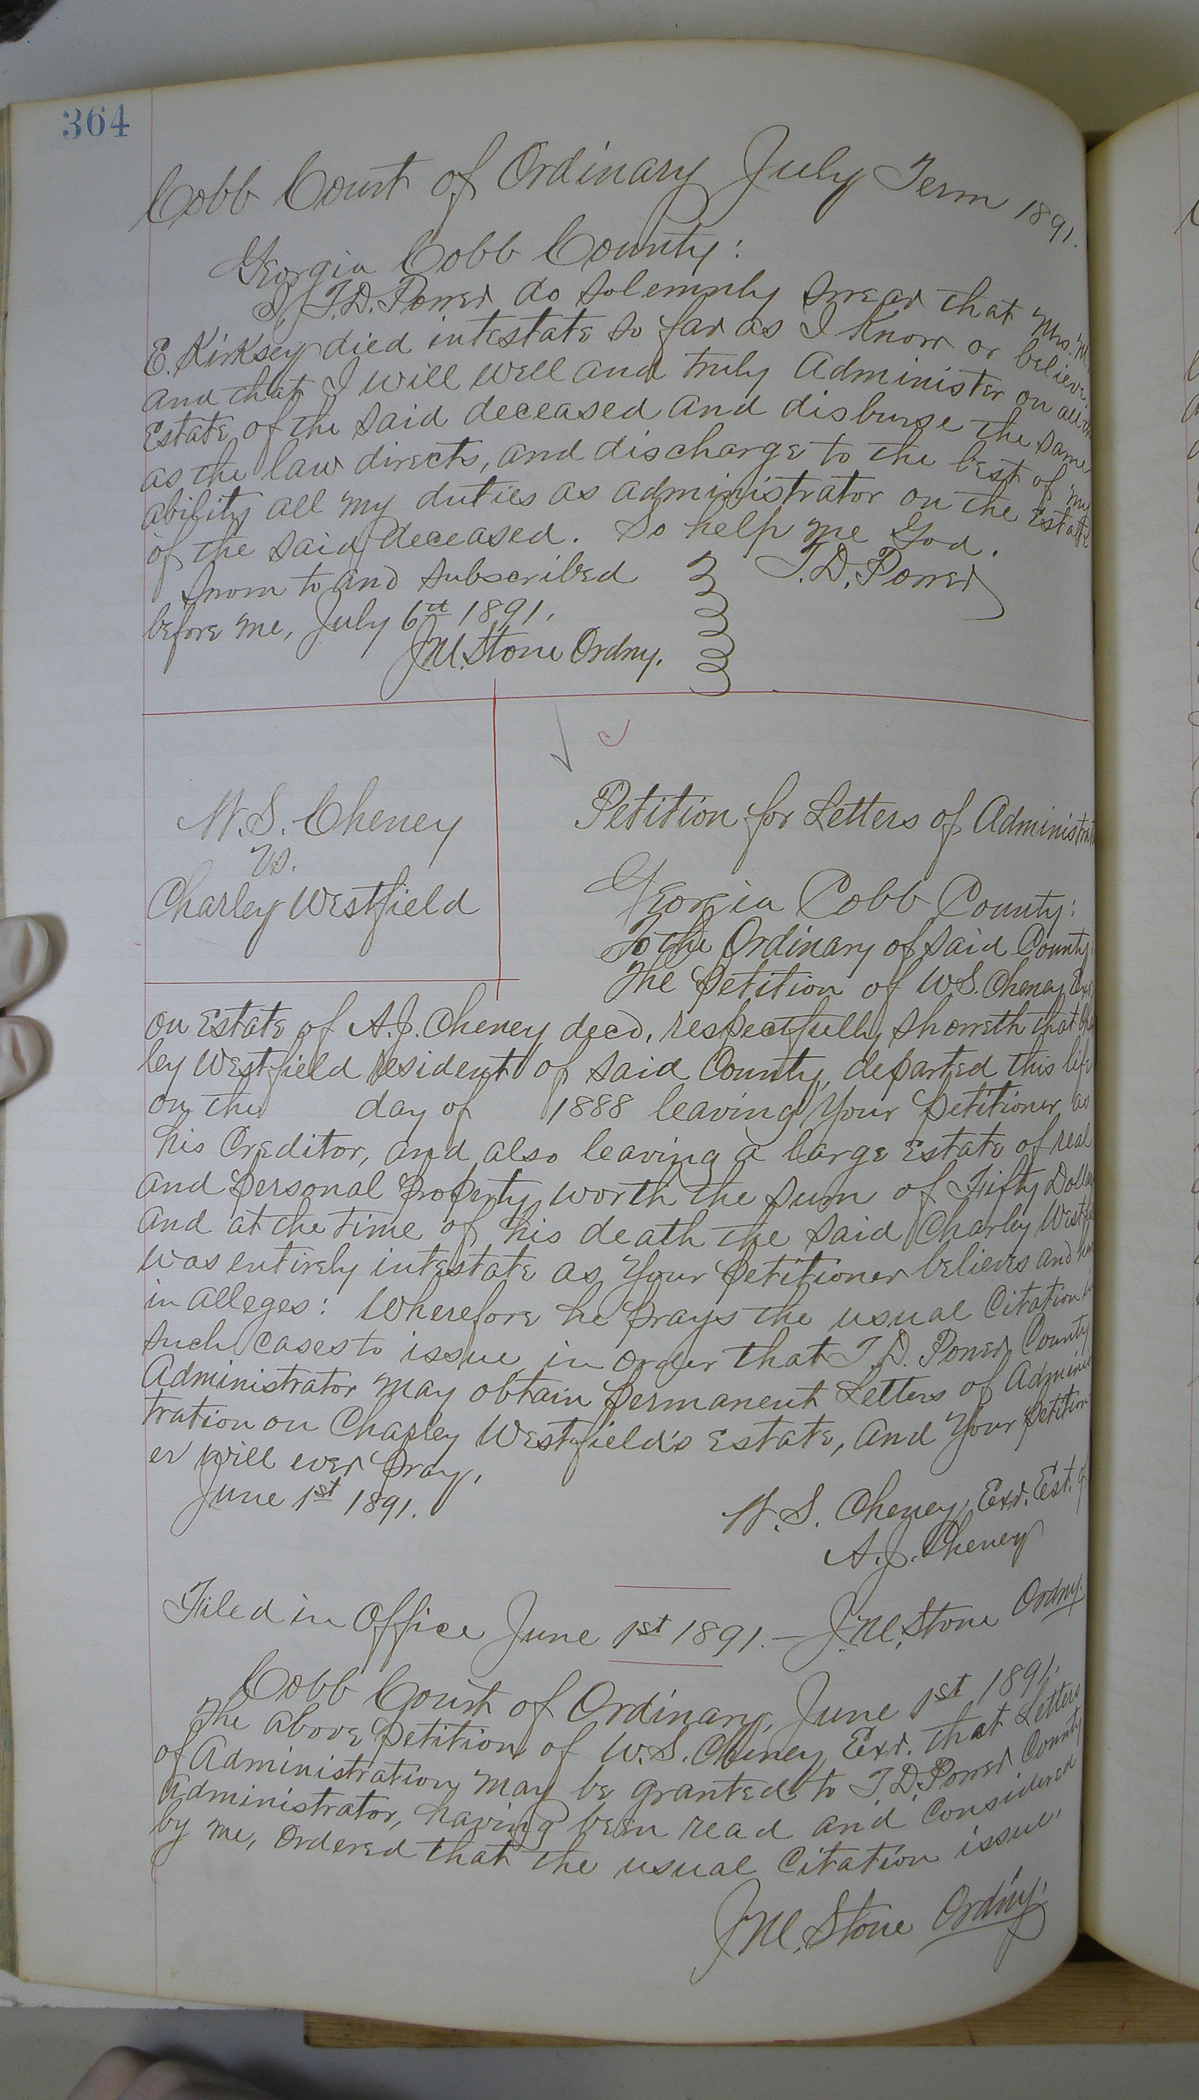 364
Cobb Court of Ordinary July Term 1891.
Georgia Cobb County:
I, T. D. Power do solemnly swear that Mrs. M.
E. Kirksey died intestate so far as I know or believe
and that I will well and truly Administer on all the
Estate of the said deceased and disburse the same
as the law directs, and discharge to the best of my
ability all my duties as administrator on the Estate
of the said deceased. So help me God.
Sworn to and subscribed T. D. Power
before me, July 6th 1891.
J. M. Stone Ordny.
W. S. Cheney
vs.
Charley Westfield
Petition for Letters of Administration
Georgia Cobb County:
To the Ordinary of said County.
The petition of W. S. Cheney Exr.
on Estate of A. J. Cheney decd, respectfully showeth that Char
ley Westfield resident of said County, departed this life
on the day of 1888 leaving Your petitioner, as
his Creditor, and also leaving a large Estate of real
and personal property, worth the sum of Fifty Dollars
and at the time of his death the said Charley Westfield
was entirely intestate as Your petitioner believes and here
in alleges: Wherefore he prays the usual Citation in
such cases to issue in order that T. D. Power County
Administrator may obtain permanent Letters of Adminis
tration on Charley Westfield's Estate, and Your petition
er will ever pray.
June 1st 1891.
W. S. Cheney, Exr. Est. of
A. J. Cheney
Filed in Office June 1st 1891. — J. M. Stone Ordny.
Cobb Court of Ordinary, June 1st 1891.
The above petition of W. S. Cheney Exr. that Letters
of Administration may be granted to T. D. Power County
Administrator, having been read and considered
by me, ordered that the usual Citation issue.
J. M. Stone Ordny.